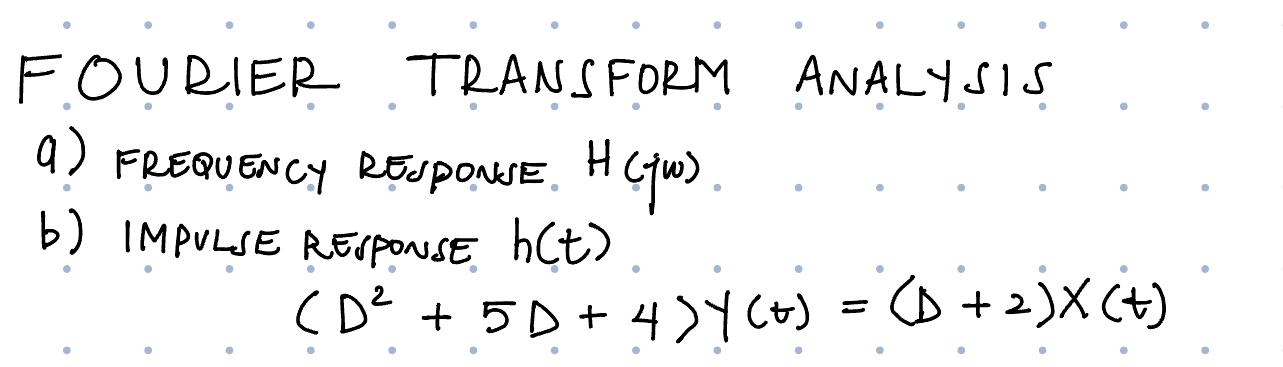 FOURIER TRANSFORM ANALYSIS
a) FREQUENCY RESPONSE H(jw)
b) IMPULSE RESPONSE h(t)
(D² + 5D + 4)Y(t) = (D + 2)X(t)